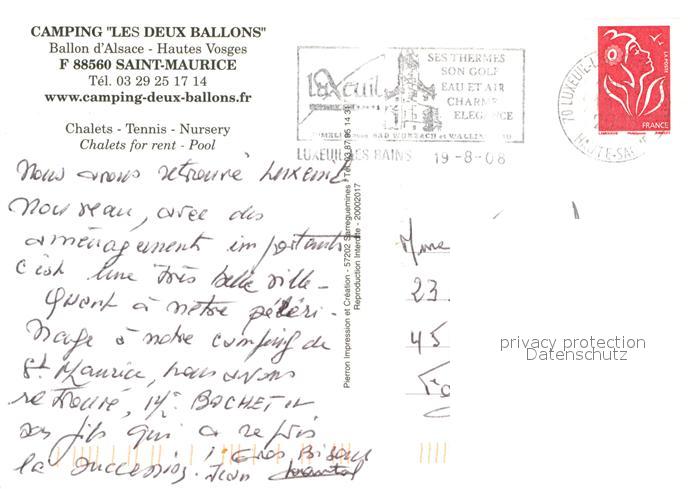 CAMPING "LES DEUX BALLONS"
Ballon d'Alsace - Hautes Vosges
F 88560 SAINT-MAURICE
Tél. 03 29 25 17 14
www.camping-deux-ballons.fr
Chalets - Tennis - Nursery
Chalets for rent - Pool
Luxeuil
SES THERMES
SON GOLF
EAU ET AIR
CHARME
ELEGANCE
LUXEUIL LES BAINS 19-8-08
70 LUXEUIL-L
HAUTE-SA
LA POSTE
FRANCE
Nous avons retrouvé Luxeuil
nouveau, avec des
aménagements importants
c'est une très belle ville -
Quant à notre péléri-
nage à notre camping de
St Maurice, nous avons
retrouvé, Mr BACHETIN
son fils qui a repris
la succession. Gros Bisous
Jean Chantal
Pierron Impression et Création - 57202 Sarreguemines - Tél. 03 87 95 14 31
Reproduction Interdite - 20002017
Mme
23
45
privacy protection
Datenschutz